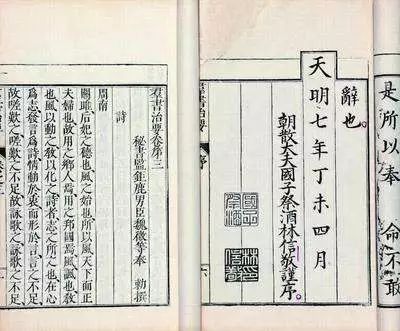 是所以奉 命不敢
辭也
天明七年丁未四月
朝散大夫國子祭酒林信敬謹序
羣書治要 序
六
羣書治要卷第三
秘書監鉅鹿男臣魏徵等奉 勅撰
詩
周南
關雎后妃之德也風之始也所以風天下而正
夫婦也故用之鄉人焉用之邦國焉風諷也敎
也風以動之敎以化之詩者志之所之也在心
爲志發言爲詩情動於衷而形於言言之不足
故嗟歎之嗟歎之不足故詠歌之詠歌之不足